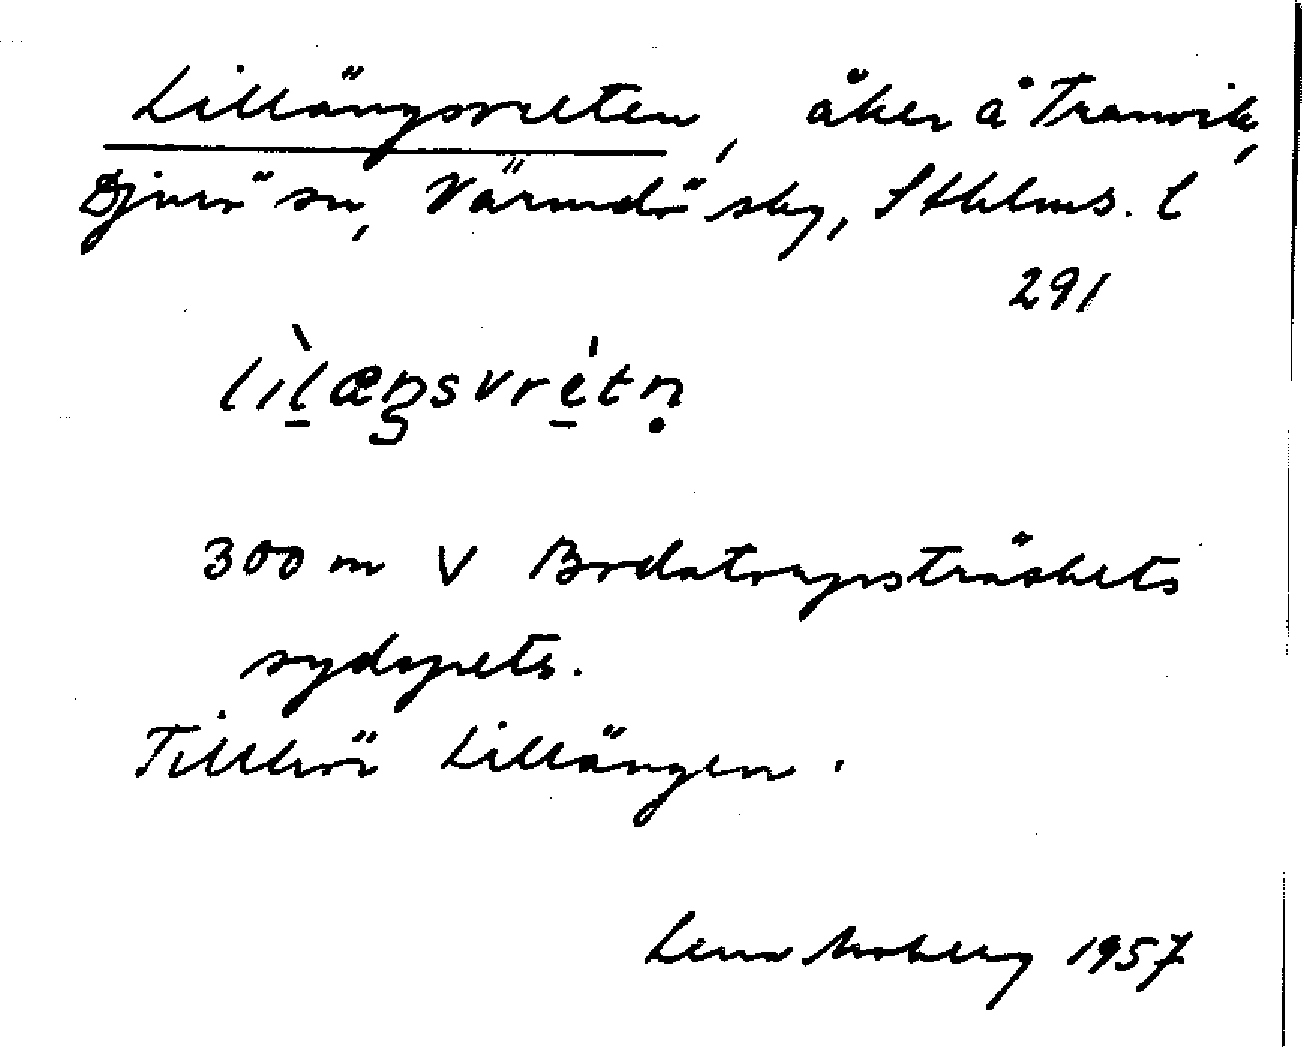 Lillängsvreten, åker å Tranvik,
Djurö sn, Värmdö skg, Sthlms. l
291
lìlæŋsvrétṇ
300 m V Brdatorpsträskets
sydspets.
Tillhör Lillängen.
Lena Moberg 1957